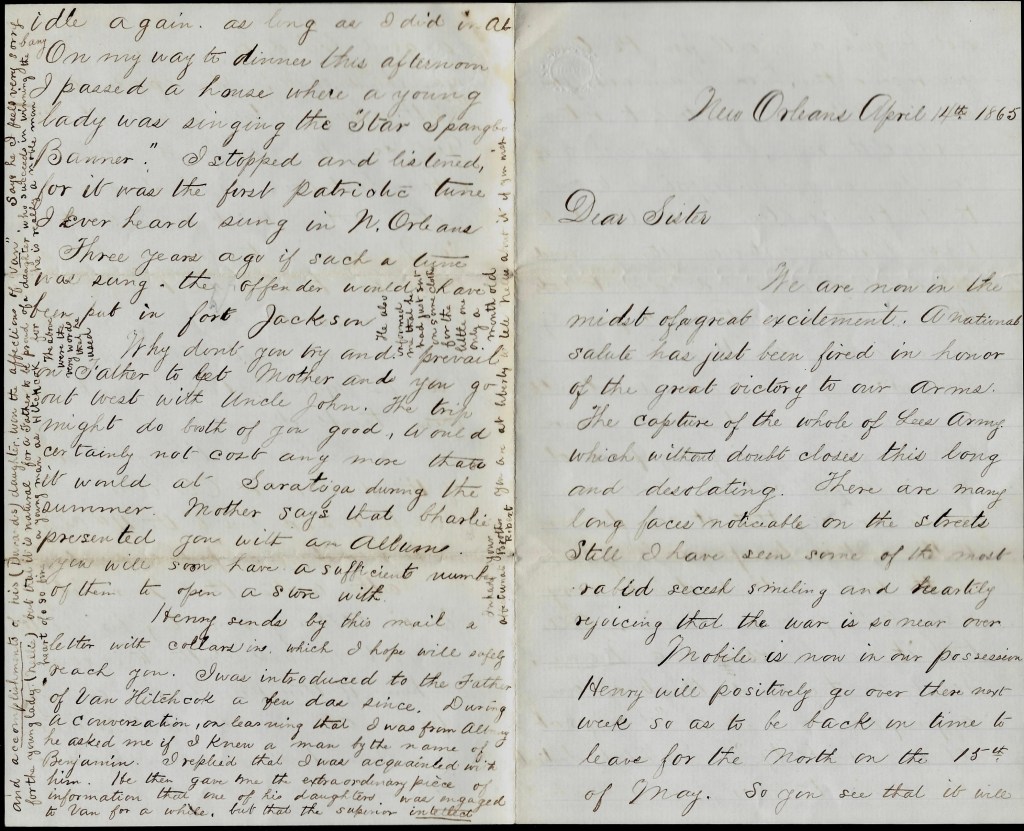 New Orleans April 14th 1865
Dear Sister
We are now in the
midst of a great excitement. A national
salute has just been fired in honor
of the great victory to our arms.
The capture of the whole of Lees Army
which without doubt closes this long
and desolating. There are many
long faces noticeable on the streets
Still I have seen some of the most
rabid secesh smiling and heartily
rejoicing that the war is so near over
Mobile is now in our possession
Henry will positively go over there next
week so as to be back in time to
leave for the North on the 15th
of May. So you see that it will
idle again. as long as I did in Al
On my way to dinner this afternoon
I passed a house where a young
lady was singing the "Star Spangle
Banner." I stopped and listened,
for it was the first patriotic tune
I ever heard sung in N. Orleans
Three years ago if such a tune
was sung. the offender would have
been put in fort Jackson
Why dont you try and prevail
on Father to let Mother and you go
out west with Uncle John. The trip
might do both of you good, would
certainly not cost any more than
it would at Saratoga during the
summer. Mother says that Charlie
presented you with an Album.
you will soon have a sufficient number
of them to open a store with.
Henry sends by this mail a
letter with collars in. which I hope will safely
reach you. I was introduced to the Father
of Van Hitchcok a few das since. During
a conversation, on learning that I was from Albany
he asked me if I knew a man by the name of
Benjamin. I replied that I was acquainted with
him. He then gave me the extraordinary piece of
information that one of his daughters was engaged
to Van for a while. but that the superior intellect
and accomplishments of his (Durands) daughter. won the affections of Van". Says he I feel very sorry
for the young lady (Nellie) but that it is natural for a Father to be proud of a daughter who succeeds in winning the
heart of so fine a young man as Hitchcok for he is really a noble man
The above
were the
very words
that he
used
He also
informed
me that he
had just sent
on some cloths
for the
little one
only a
month old
you are at liberty to tell Nellie about it if you wish
In haste Your
affectionate Brother
Robert